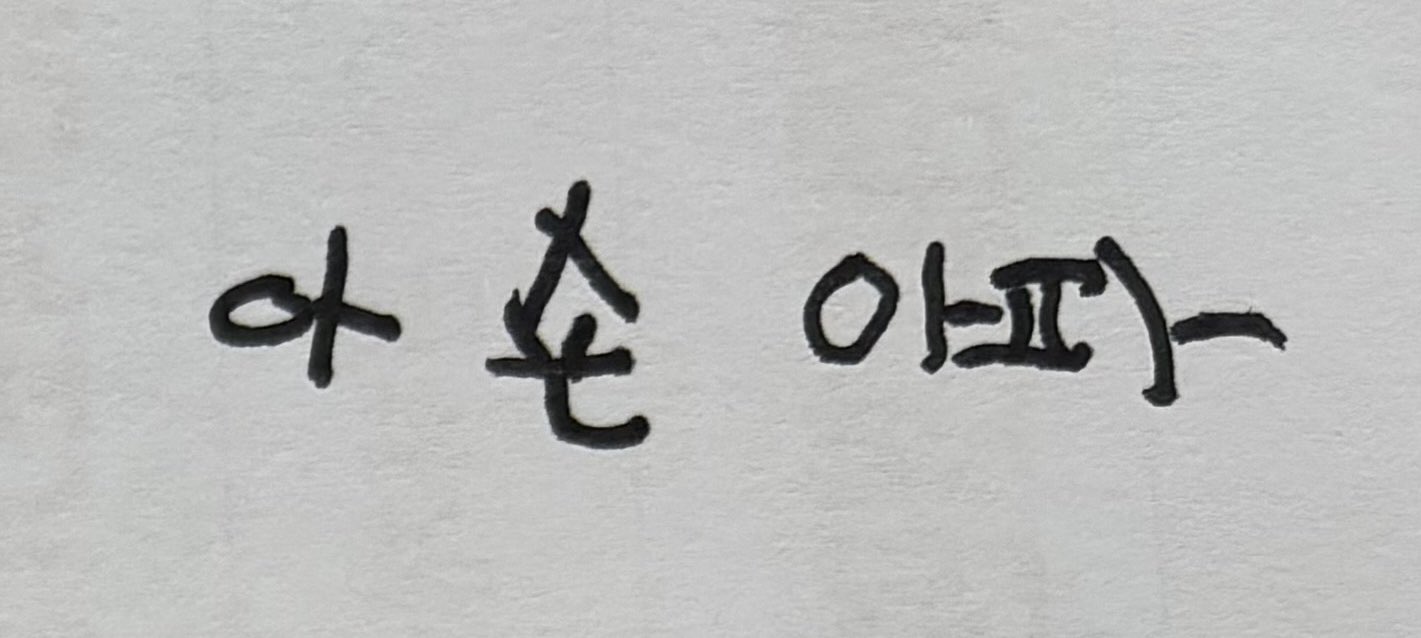 아 손 아파